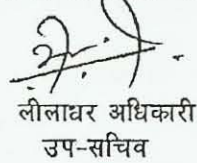 लीलाधर अधिकारी
उप-सचिव